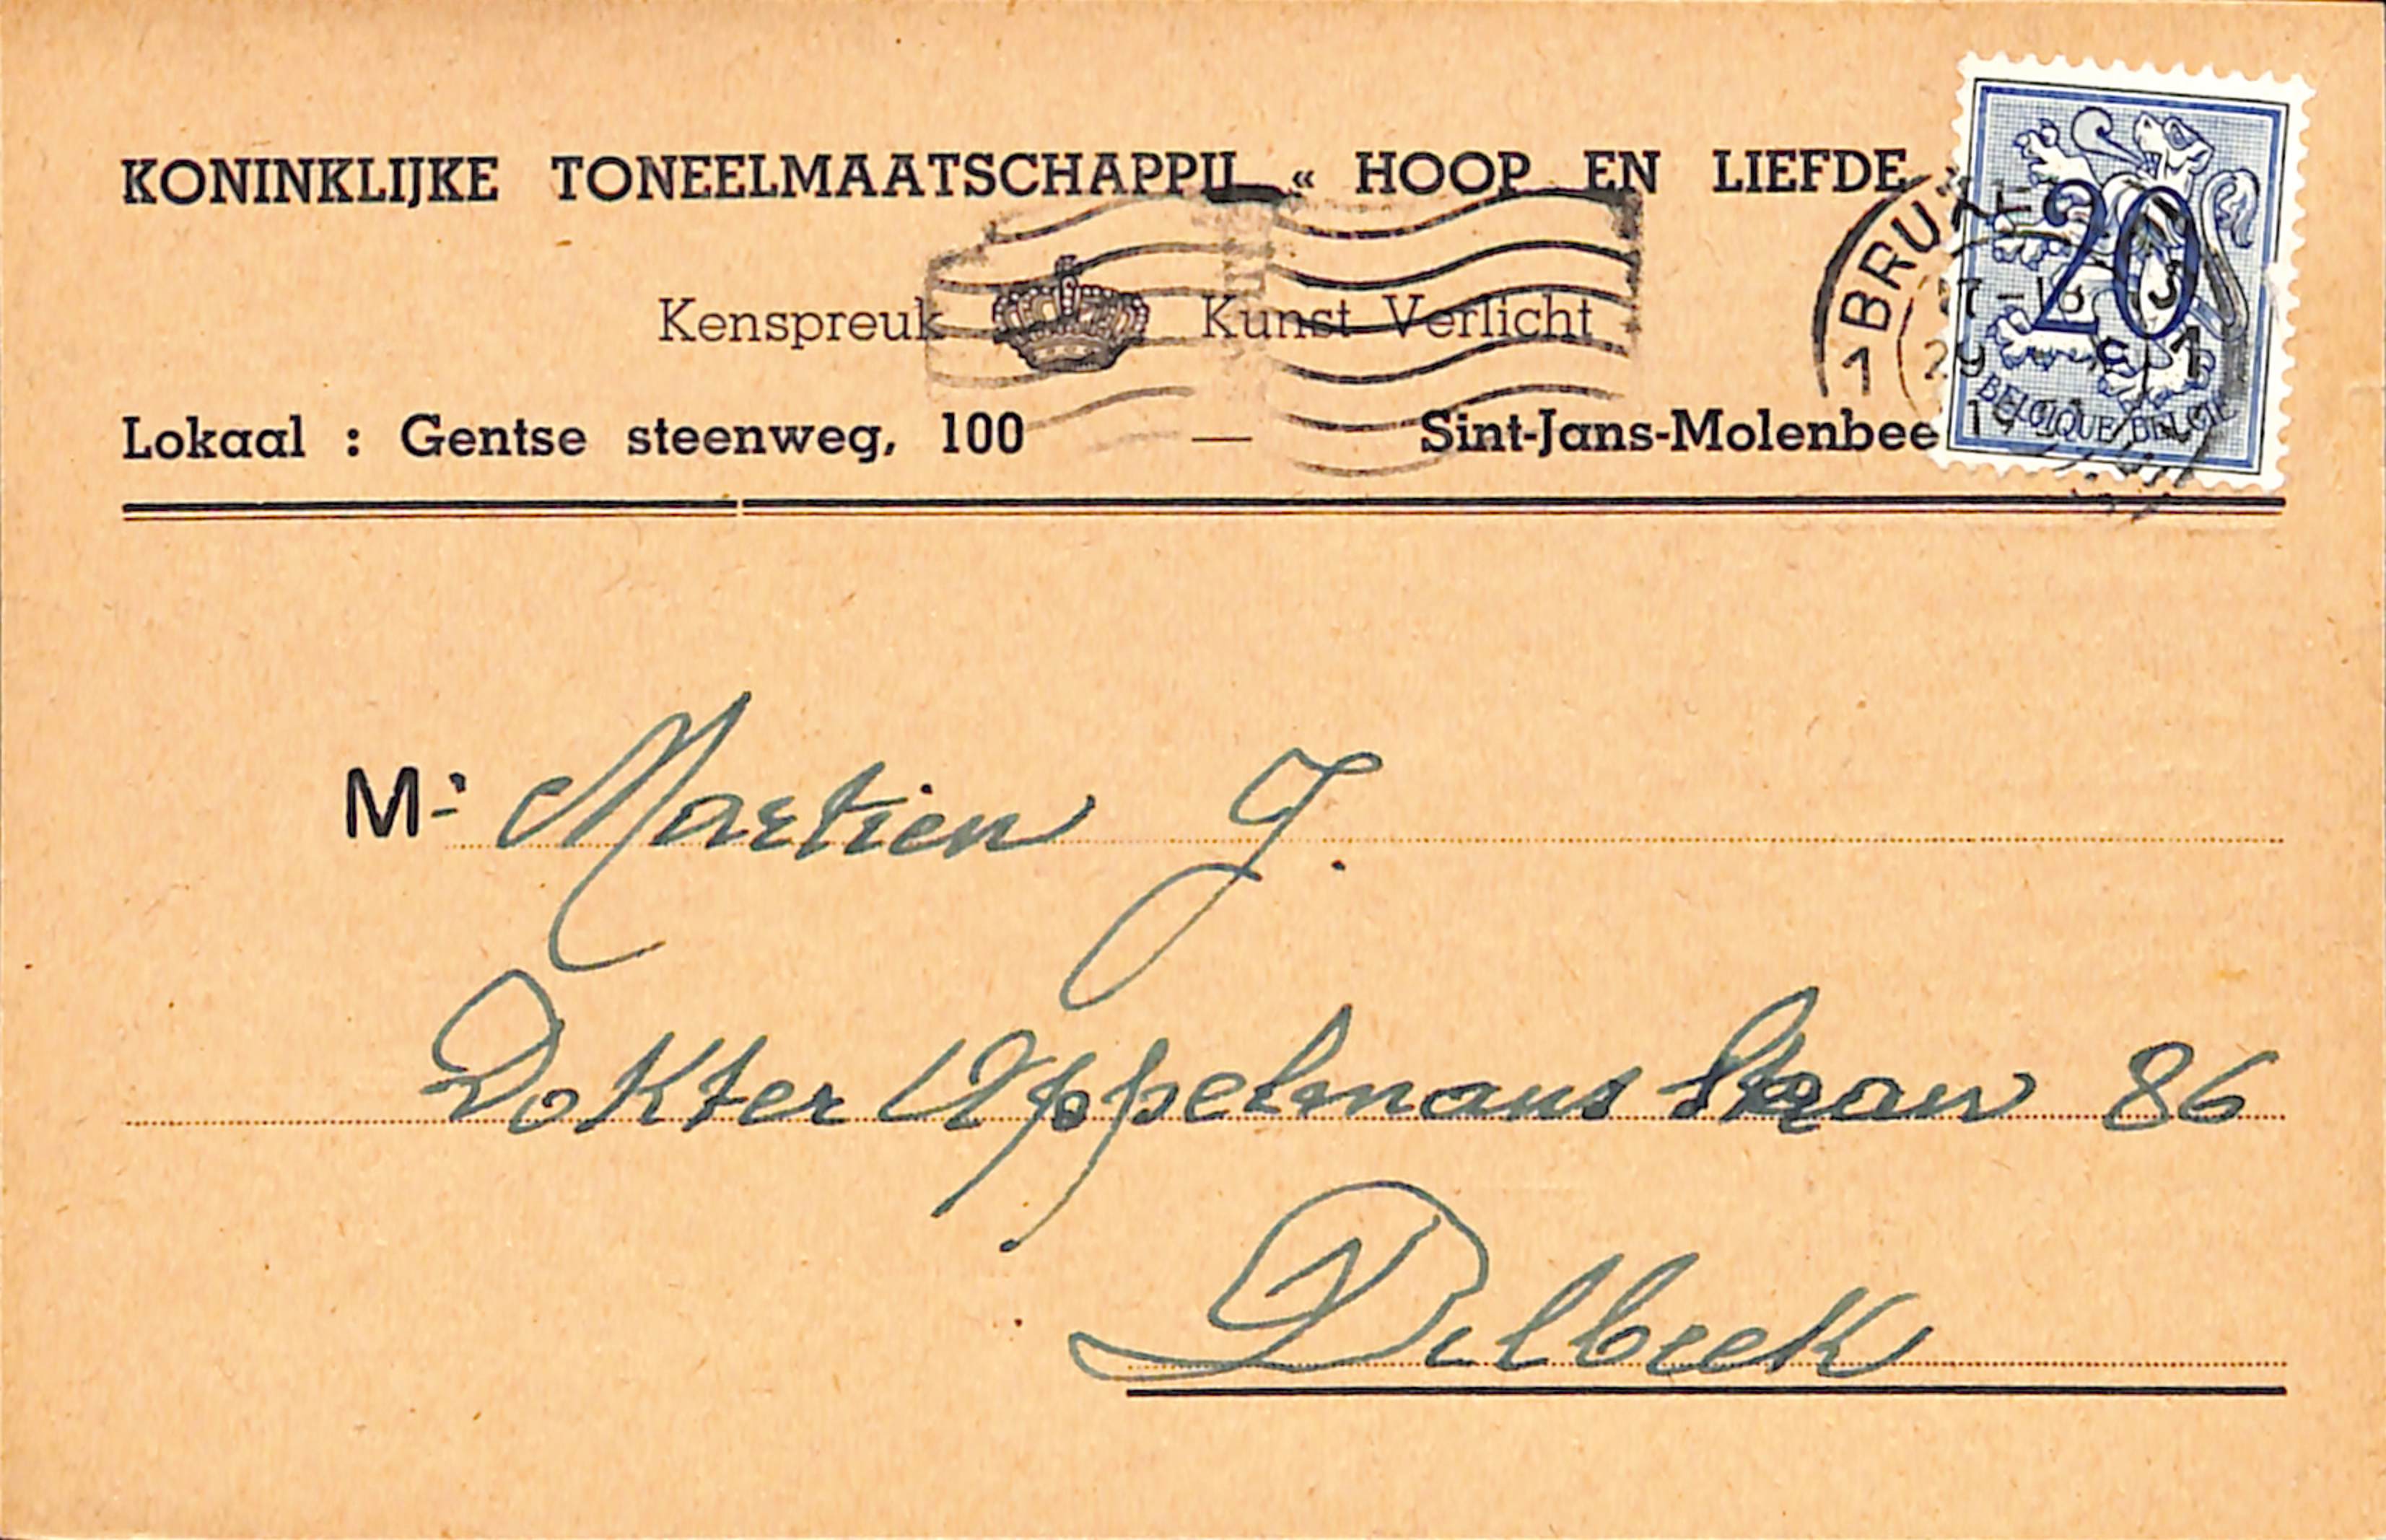 KONINKLIJKE TONEELMAATSCHAPPIJ « HOOP EN LIEFDE
Kenspreuk Kunst Verlicht
Lokaal : Gentse steenweg, 100 — Sint-Jans-Molenbee
20
BELGIQUE BELGIE
BRUX
1
M: Martien J.
Dokter Appelmans Straw 86
Dilbeek